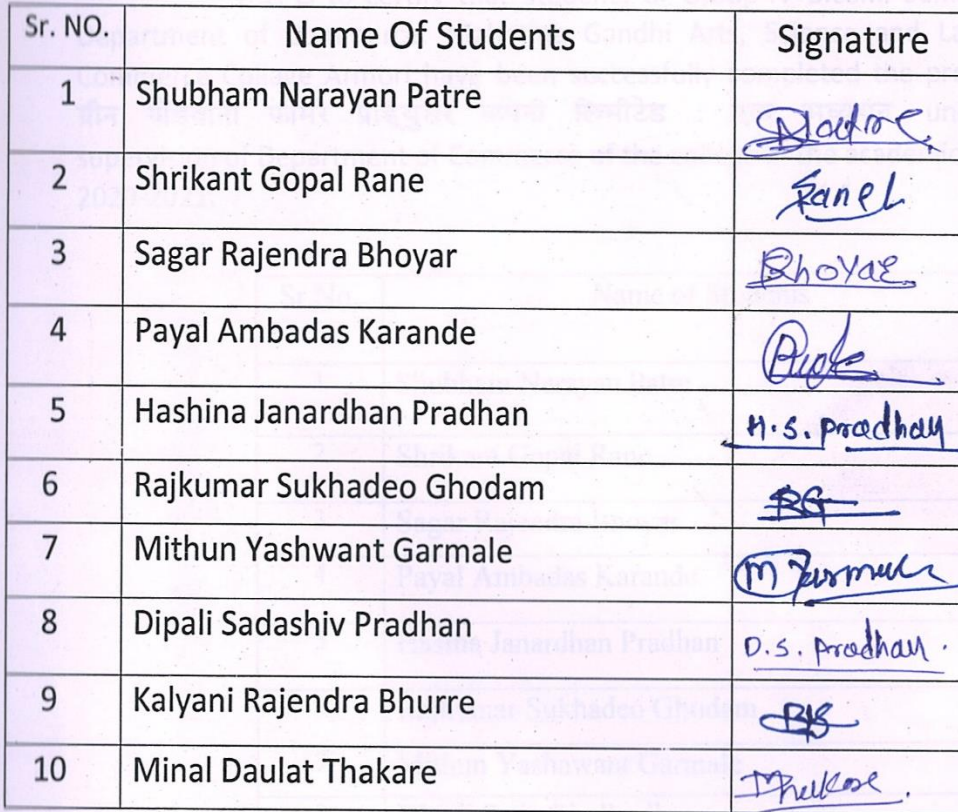 Sr. NO. Name Of Students Signature
1 Shubham Narayan Patre
2 Shrikant Gopal Rane Ranel
3 Sagar Rajendra Bhoyar Bhoyar
4 Payal Ambadas Karande
5 Hashina Janardhan Pradhan H.S. Pradhan
6 Rajkumar Sukhadeo Ghodam RG
7 Mithun Yashwant Garmale
8 Dipali Sadashiv Pradhan D.S. Pradhan.
9 Kalyani Rajendra Bhurre
10 Minal Daulat Thakare